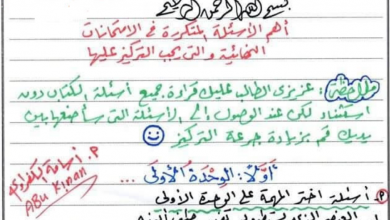 بسم الله الرحمن الرحيم
أهم الأسئلة المتكررة في الامتحانات
النهائية والتي يجب التركيز عليها
ملاحظة: عزيزي الطالب عليك قراءة جميع أسئلة الكتاب دون
استثناء لكن عند الوصول إلى الأسئلة التي سأضعها بين
يديك قم بزيادة جرعة التركيز
أولاً: الوحدة الأولى
P. أسامة
ABU Kinan
أسئلة اختر المهمة على الوحدة الأولى